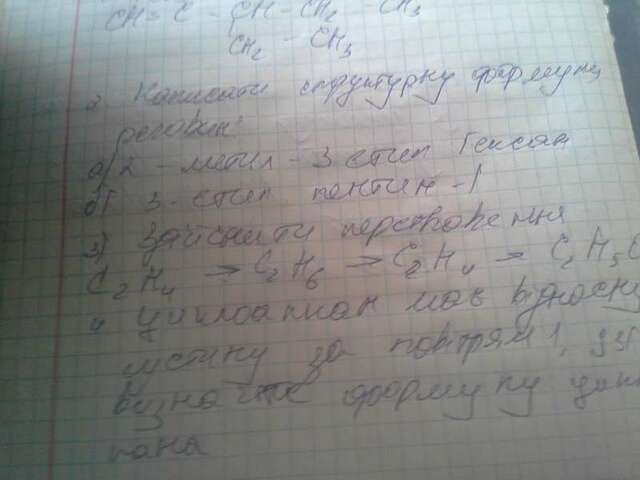 CH≡C - CH - CH2 - CH3
CH2 - CH3
2 Написати структурну формулу
речовин:
а) 2 - метил - 3 етил гексан
б) 3-етил пентин -1
3) Здійснити перетворення
C2H4 → C2H6 → C2H4 → C2H5
4 циклоалкан має відносну
густину за повітрям 1,
визначте формулу